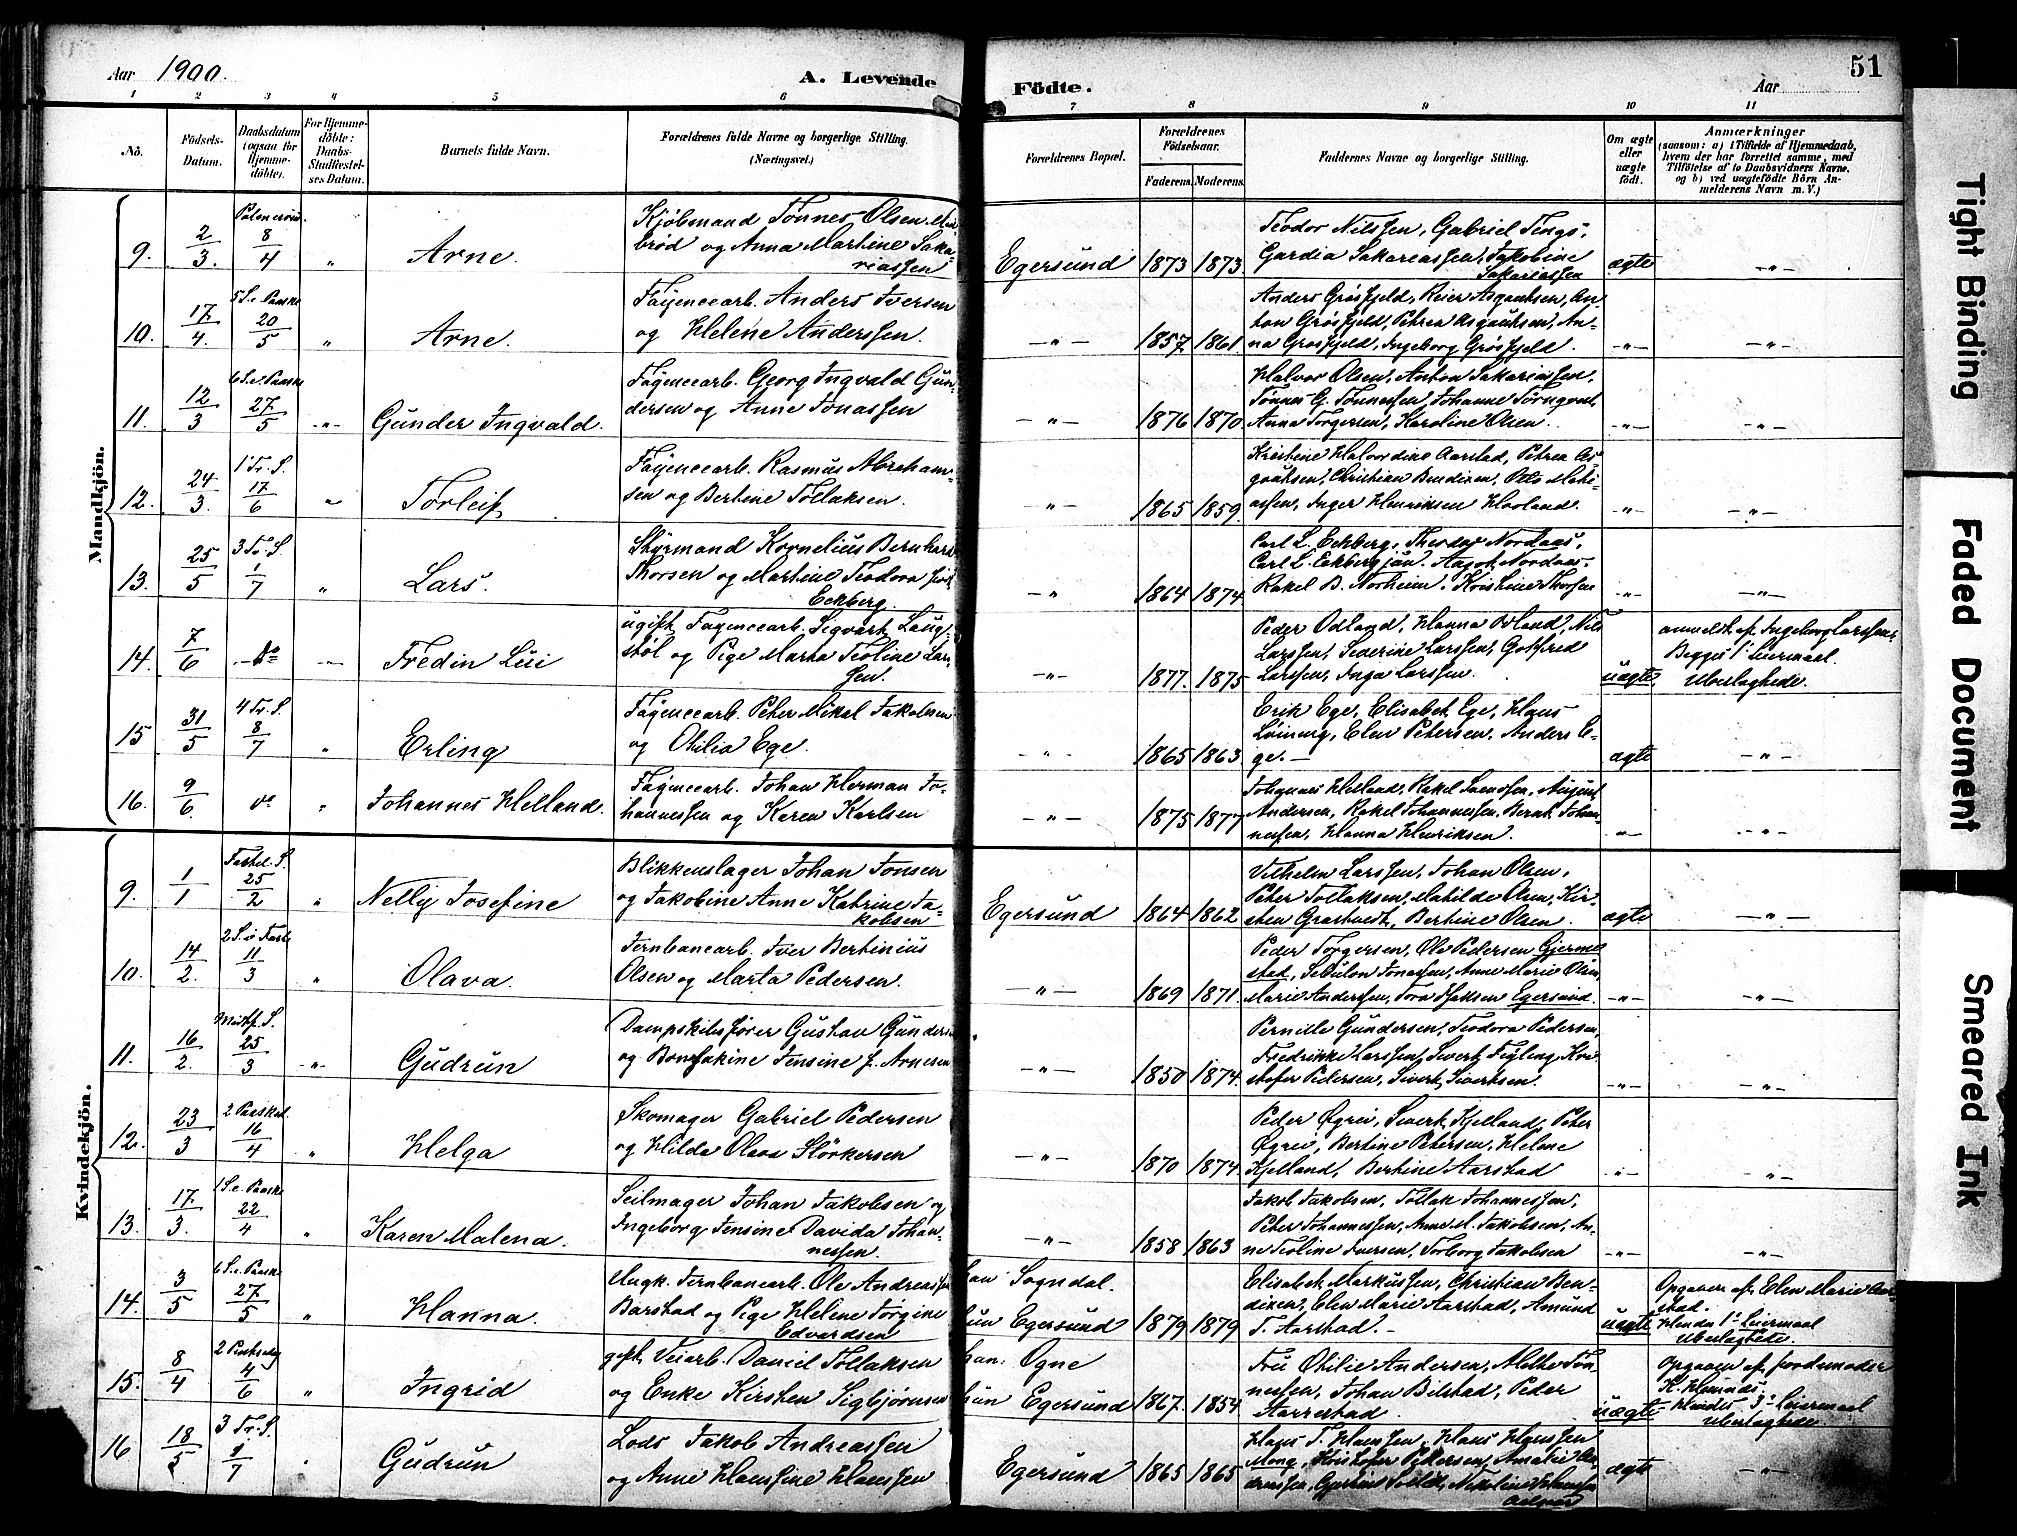 Aar 1900.
A. Levende
Födte.
Aar
51
1 2 3 4 5 6 7 8 9 10 11
No.
Födsels-
Datum.
Daabsdatum
(ogsaa for
Hjemme-
döbte).
For Hjemme-
döbte:
Daabs-
Stadfæstel-
ses Datum.
Barnets fulde Navn.
Forældrenes fulde Navne og borgerlige Stilling.
(Næringsvei.)
Forældrenes Bopæl.
Forældrenes
Födselsaar.
Faderens. Moderens.
Faddernes Navne og borgerlige Stilling.
Om ægte
eller
uægte
födt.
Anmærkninger
(saasom: a) i Tilfælde af Hjemmedaab,
hvem der har forrettet samme, med
Tilföielse af to Daabsvidners Navne,
og b) ved uægtefödte Börn An-
melderens Navn m. V.)
Mandkjön.
9. 2/3. 8/4 „ Arne.
Kjøbmand Tønnes Olsen
brød og Anna Martine Saka-
riassen
Egersund 1873 1873
Teodor Nilssen, Gabriel Tengs,
Gardia Sakariassen, Jakobine
Sakariassen
ægte -„-
10. 17/4. 5 S. e. Paaske 20/5 „ Arne.
Fayencearb. Anders Iversen
og Helene Anderssen.
-„- 1857. 1861.
Anders Grøsfjeld, Reier Asgautsen, An-
ton Grøsfjeld, Petrea Asgautsen, An-
na Grøsfjeld, Ingeborg Grøsfjeld.
-„- -„-
11. 12/3 6 S. e. Paaske 27/5 -„- Gunder Ingvald.
Fayencearb. Georg Ingvald Gun-
dersen og Anne Jonassen
-„- 1876 1870.
Halvor Olsen, Anton Sakariassen,
Tønnes G. Tønnessen, Johanne Törnqvist,
Anna Torgersen, Karoline Olsen.
-„- -„-
12. 24/3. 1 Tr. S. 17/6 „ Torleif
Fayencearb. Rasmus Abraham-
sen og Bertine Tollaksen.
-„- 1865 1859.
Kristine Halvordine Aarstad, Petrea As-
gautsen, Christian Bendixen, Otto Mathi-
assen, Inger Henriksen Hovland.
-„- -„-
13. 25/5 3 Tr. S. 1/7 „ Lars.
Styrmand Kornelius Bernhard
Thorsen og Martine Teodora født
Eckberg.
-„- 1864 1874
Carl L. Eckberg, Theodor Nordaas,
Carl L. Eckberg jun. Aagot Nordaas,
Rakel B. Norheim, Kristine Thorsen
-„- -„-
14. 7/6 do -„- Fredin Lui
ugift Fayencearb. Sigvart Laug-
støl og Pige Marta Teoline Lar-
sen.
-„- 1877. 1875
Peder Odland, Hanna Odland, Nils
Larssen, Severine Larssen, Gotfred
Larssen, Inga Larssen.
uægte.
anmeldt af Ingeborg Larssen,
Begges 1' Leiermaal.
Uberlagtede.
15 31/5 4 Tr. S. 8/7 „ Erling
Fayencearb. Peter Mikal Jakobsen
og Otilia Ege.
-„- 1865 1863.
Erik Ege, Elisabet Ege, Hans
Løining, Elen Petersen, Anders E-
ge. -
ægte -„-
16. 9/6. do „ Johannes Helland.
Fayencearb. Johan Herman Jo-
hannessen og Karen Karlsen
-„- 1875 1877
Johannes Helland, Rakel Svendsen, August
Andersen, Rakel Johannessen, Bernt Johan-
nessen, Hanna Henriksen.
-„- -„-
Kvindekjön.
9. 1/1 Fastel. S. 25/2 „ Nelly Josefine
Blikkenslager Johan Jonsen
og Jakobine Anne Katrine Ja-
kobsen
Egersund 1864 1862
Vilhelm Larssen, Johan Olsen,
Peter Tollaksen, Matilde Olsen, Kir-
sten Grastveit, Bertine Olsen.
ægte -„-
10. 14/2. 2 S. i Faste 11/3 „ Olava.
Jernbanearb. Iver Bertinius
Olsen og Marta Pedersen.
-„- 1869 1871.
Peder Torgersen, Ole Pedersen Gjerme-
stad, Sebulon Jonassen, Anne Marie Olsen,
Marie Anderssen, Tora Isaksen Egersund.
-„- -„-
11. 16/2. Midtf. S. 25/3 -„- Gudrun
Dampskibsfører Gustav Gundersen
og Bonfakine Jensine f. Arnesen
-„- 1850 1874.
Pernille Gundersen, Teodora Pedersen,
Fredrikke Larssen, Sivert Feyling, Kri-
stofer Pedersen, Sivert Sivertsen.
-„- -„-
12. 23/3 2 Paaskd. 16/4 „ Helga
Skomager Gabriel Pedersen
og Hilda Olava Størkersen
-„- 1870 1874
Peder Øgrei, Sivert Kjelland, Peter
Øgrei, Bertine Petersen, Helene
Kjelland, Bertine Aarstad
-„- -„-
13. 17/3. 1 S. e. Paaske 22/4 „ Karen Malena.
Seilmager Johan Jakobsen og
Ingeborg Jensine Davida Johan-
nessen.
-„- 1858 1863
Jakob Jakobsen, Tollak Johannessen,
Peter Johannessen, Anne M. Jakobsen, An-
ne Teoline Iversen, Torborg Jakobsen
-„- -„-
14. 3/5 6 S. e. Paaske 27/5 „ Hanna.
Ungk. Jernbanearb. Ole Andreassen
Barstad og Pige Helene Torgine
Edvardsen
han Sogndal.
hun Egersund 1879 1879
Elisabet Markussen, Christian Ben-
dixen, Elen Marie Aarstad, Amund
T. Aarstad. -
uægte
Opgaven af Elen Marie Aar-
stad.
Hendes 1' Leiermaal
Uberlagtede.
15. 8/4 2 Pintsedag 4/6 „ Ingrid
gift Veiarb. Daniel Tollaksen
og Enke Kirsten Sigbjørnsen
han: Ogne
hun Egersund 1867. 1854
Fru Otilie Andersen, Alethe Tøn-
nesen, Johan Bilstad, Peder
Aarrestad.
uægte
Opgaven af Jordemoder
K. Henrids.
Hendes 3' Leiermaal
Uberlagtede.
16 18/5 3 Tr. S. 1/7 „ Gudrun
Lods Jakob Andreassen
og Anne Hanssine Hanssen
Egersund 1865 1865
Hans T. Hanssen, Hans Hanssen
Mong, Kristofer Pedersen, Amalie An-
dreassen,
ægte -„-
Tight Binding
Faded Document
Smeared Ink